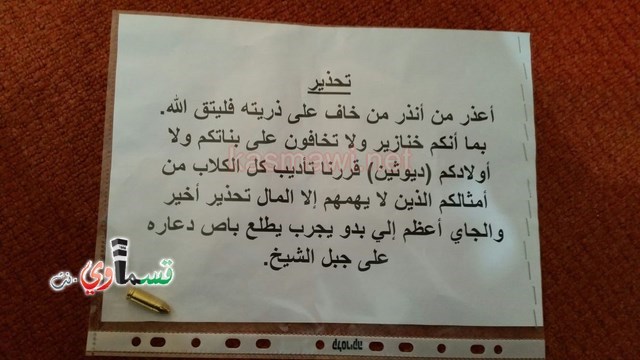 تحذير
أعذر من أنذر من خاف على ذريته فليتق الله.
بما أنكم خنازير ولا تخافون على بناتكم ولا
أولادكم (ديوثين) قررنا تاديب كل الكلاب من
أمثالكم الذين لا يهمهم إلا المال تحذير أخير
والجاي أعظم إلي بدو يجرب يطلع باص دعاره
على جبل الشيخ.
قسماوي.نت